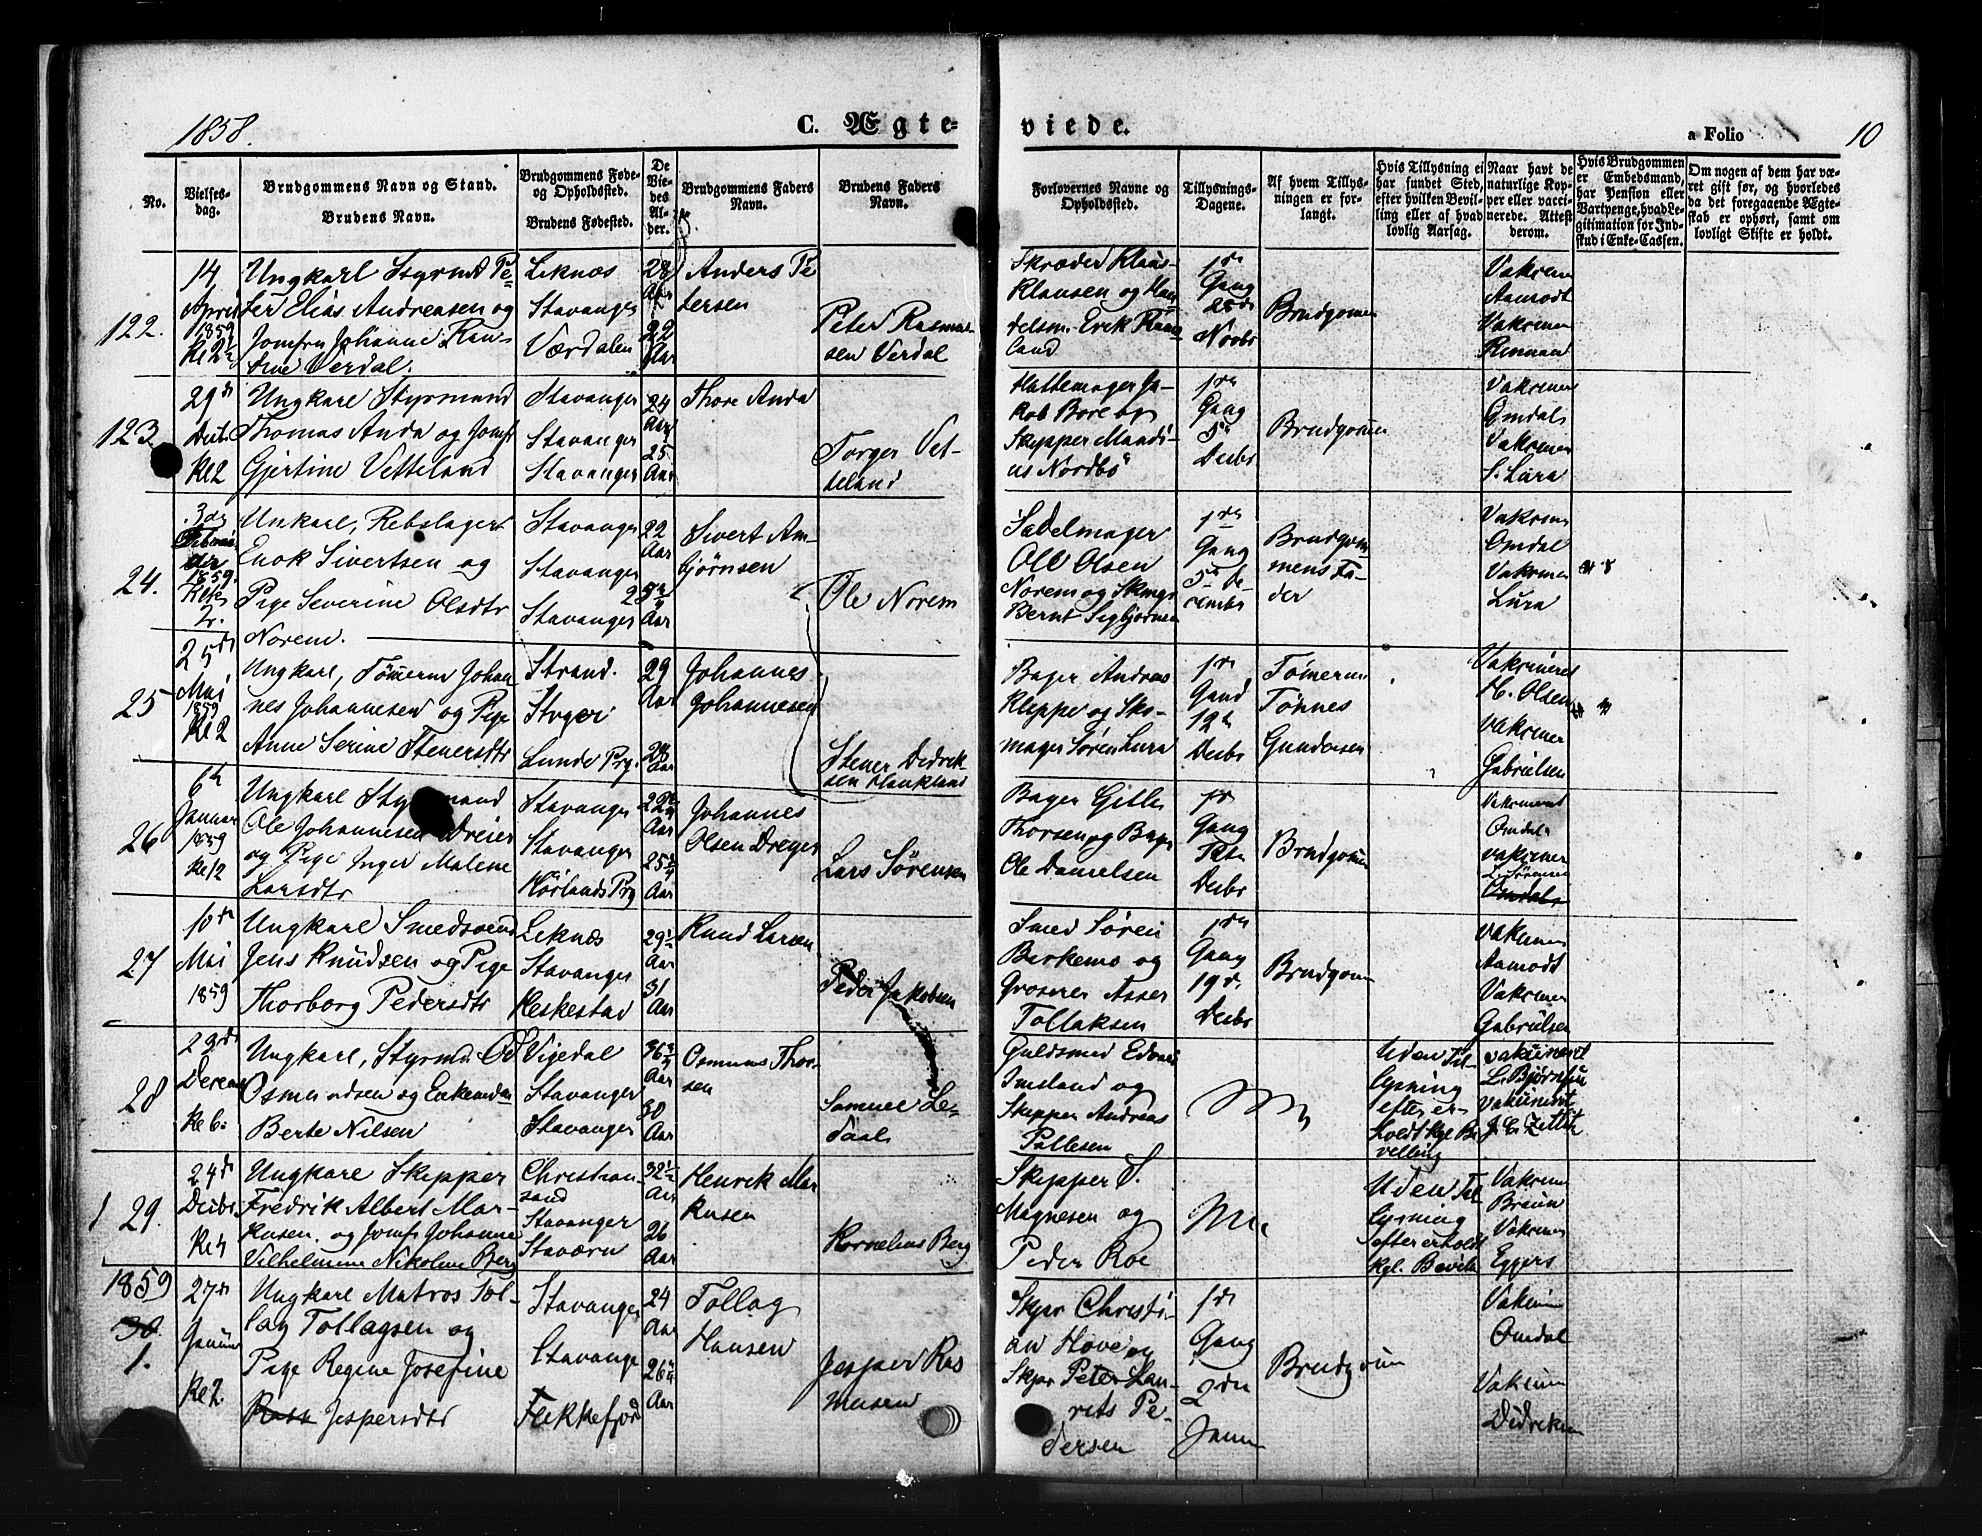 1858.
C. Ægte-
viede.
a Folio
10
No.
Vielses-
dag.
Brudgommens Navn og Stand.
Brudens Navn.
Brudgommens Føde-
og Opholdssted.
Brudens Fødested.
De
Vie-
des
Al-
der.
Brudgommens Faders
Navn.
Brudens Faders
Navn.
Forlovernes Navne og
Opholdssted.
Tillysnings-
Dagene.
Af hvem Tillys-
ningen er for-
langt.
Hvis Tillysning ei
har fundet Sted,
efter hvilken Bevil-
ling eller af hvad
lovlig Aarsag.
Naar havt de
naturlige Kop-
per eller vacci-
nerede. Attest
derom.
Hvis Brudgommen
er Embedsmand,
har Pension eller
Vartpenge, hvad Le-
gitimation for Ind-
skud i Enke-Cassen.
Om nogen af dem har væ-
ret gift før, og hvorledes
da det foregaaende Ægte-
skab er ophørt, samt om
lovligt Skifte er holdt.
122.
14
April
1859
Kl 2½
Ungkarl Styrmd Pe-
ter Elias Andreasen og
Jomfru Johanne Kan-
tine Verdal.
Leknæs
Stavanger
Værdalen
28
Aar
22
Aar
Anders Pe
tersen
Peter Rasmus-
sen Verdal
Skræder Klaus-
Klausen og Han
delsm. Erik
land
1ste
Gang
28de
Novbr
Brudgomen
Vakciner
Aamodt
Vakciner
123
29de
Decbr
Kl 2
Ungkarl Styrmand
Thomas Anda og Jomfr
Gjertine Vetteland
Stavanger
Stavanger
Stavanger
24
Aar
25
Aar
Thore Anda
Torger Vet-
teland
Hattemager Ja-
kob Bore og
Skipper Maudi-
us Nordbö
1ste
Gang
5te
Decbr
Brudgomen
Vakciner
Omdal
Vakciner
S. Lura
24.
3de
Februar
1859.
Klk
2.
Unkarl, Rebslager
Enok Sivertsen og
Pige Severine Olsdtr
Norem.
Stavanger
Stavanger
Stavanger
22
Aar
Aar
Sivert Am-
bjørnsen
Ole Norem
Sadelmager
Ole Olsen
Norem og
Bernt Sigbjørnsen
1ste
Gang
5te De
cembr
Brudgom-
mens Fa-
der
Vakciner
Omdal
Vakciner
Lura
25
25de
Mai
1859
Kl 2
Ungkarl, Tømerm Johan
nes Johannesen og Pige
Anne Serine Stenersdtr
Strand.
Lunde Prg.
29
Aar
28
Aar
Johannes
Johannesen
Stener Didrik-
sen Haukland
Bager Andreas
Kleppe og Sko-
mager Søren Lura
1ste
Gand
12te
Decbr
Tømerm
Tönnes
Gundersen
Vakcineret
H. Olsen
Vakciner
Gabrielsen
26
6te
Januar
1859
Kl 2
Ungkarl Styrmand
Ole Johannesen Dreier
og Pige Inger Malene
Larsdtr
Stavanger
Stavanger
Aar
Aar
Johannes
Olsen Dreyer
Lars Sörensen
Bager Gitle
Thorsen og Bager
Ole Danielsen
1ste
Gang
Decbr
Brudgomen
Vakcineret
Omdal
Vakciner
L. Sörensen
Omdal
27
10de
Mai
1859
Ungkarl Smedsvend
Jens Knudsen og Pige
Thorborg Pedersdtr
Leknæs
Stavanger
Heskestad
29½
Aar
31
Aar
Knud Larsen
Peder Jakobsen
Smed Sören
Birkemo og
Groserer Asser
Tollaksen
1ste
Gang
19de
Decbr
Brudgomen
Vakciner
Aamodt
Vakciner
Gabrielsen
28
29de
Kl 6.
Ungkarl, Styrmd Od
Osmundsen og Enkemdm
Berte Nilsen
Vigedal
Stavanger
Stavanger
36¾
Aar
30
Aar
Osmund Thor-
sen
Samuel Le-
daal
Guldsmed Edvard
Imsland og
Skipper Andreas
Pallesen
Uden Til-
lysning
efter er-
holdt kgl Be
villing
Vakcineret
L. Bjørnsen
Vakcineret
J. C. Zettz
29.
24de
Decbr
Kl 4
Ungkarl Skipper
Fredrik Albert Mar-
kusen. og Jomfr Johanne
Vilhelmine Nikoline Berg
Christian-
sand
Stavanger
Staværn
32½
Aar
26
Aar
Henrik Mar
kusen
Kornelius Berg
Skipper S.
Magnesen og
Peder Roe
Uden Til
lysning
efter erholdt
kgl. Bevilln
Vakcin
Braun
Vakciner
Eggers
1859
30.
1.
27de
Januar
Kl 2.
Ungkarl Matros Tol-
lag Tollagsen og
Pige Regine Josefine
Jespersdtr
Stavanger
Stavange
Flekkefjord
24
Aar
Aar
Tollag
Hansen
Jesper Ras
musen
Skpr Christi-
an Hove og
Skpr Peter Lau-
rits Pe-
dersen
1ste
Gang
2den
Januar
Brudgomen
Vakcin
Omdal
Vakcin
Didriksen